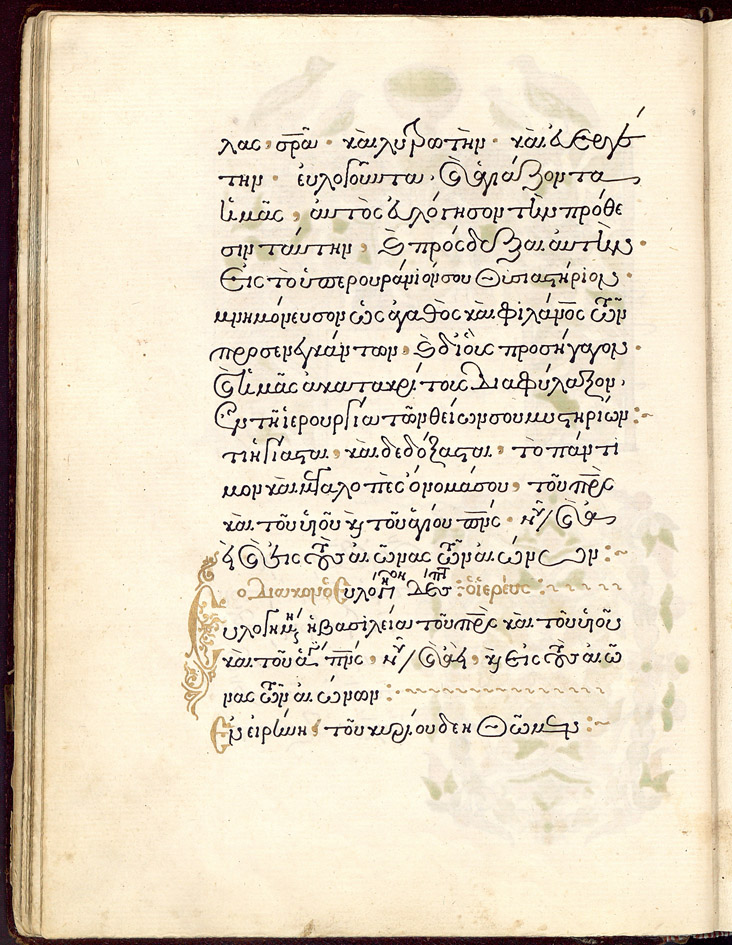 λας, σρ̅α · καὶ λυτρωτὴν · καὶ εὐεργέ
την · εὐλογοῦντα · καὶ ἁγιάζοντα
ἡμᾶς, αὐτὸς εὐλόγησον τὴν πρόθε
σιν ταύτην, καὶ πρόσδεξαι αὐτὴν ·
εἰς τὸ ὑπερουράνιόν σου θυσιαστήριον ·
μνημόνευσον ὡς ἀγαθὸς καὶ φιλάν̅ος τῶν
προσενεγκάντων, καὶ δι' οὓς προσήγαγον ·
καὶ ἡμᾶς ἀκατακρίτους διαφύλαξον,
ἐν τῇ ἱερουργία τῶν θείων σου μυστηρίων :~
τι ἡγίασται, καὶ δεδόξασται, τὸ πάντι
μον καὶ μεγαλοπρεπὲς ὄνομά σου, τοῦ πρ̅ς
καὶ τοῦ υἱοῦ καὶ τοῦ ἁγίου πν̅ς · νῦν / καὶ ἀ
εὶ καὶ εἰς τοὺς αἰῶνας τῶν αἰώνων :~
ὁ Διάκονος Εὐλόγησον Δέσποτα : ὁ ἱερεύς :~
υλογημένη ἡ βασιλεία τοῦ πρ̅ς καὶ τοῦ υἱοῦ
καὶ τοῦ ἁγίου πν̅ς, νῦν / καὶ ἀεὶ, καὶ εἰς τοὺς αἰῶ
νας τῶν αἰώνων :~
Ἐν εἰρήνη τοῦ κυρίου δεηθῶμεν :~